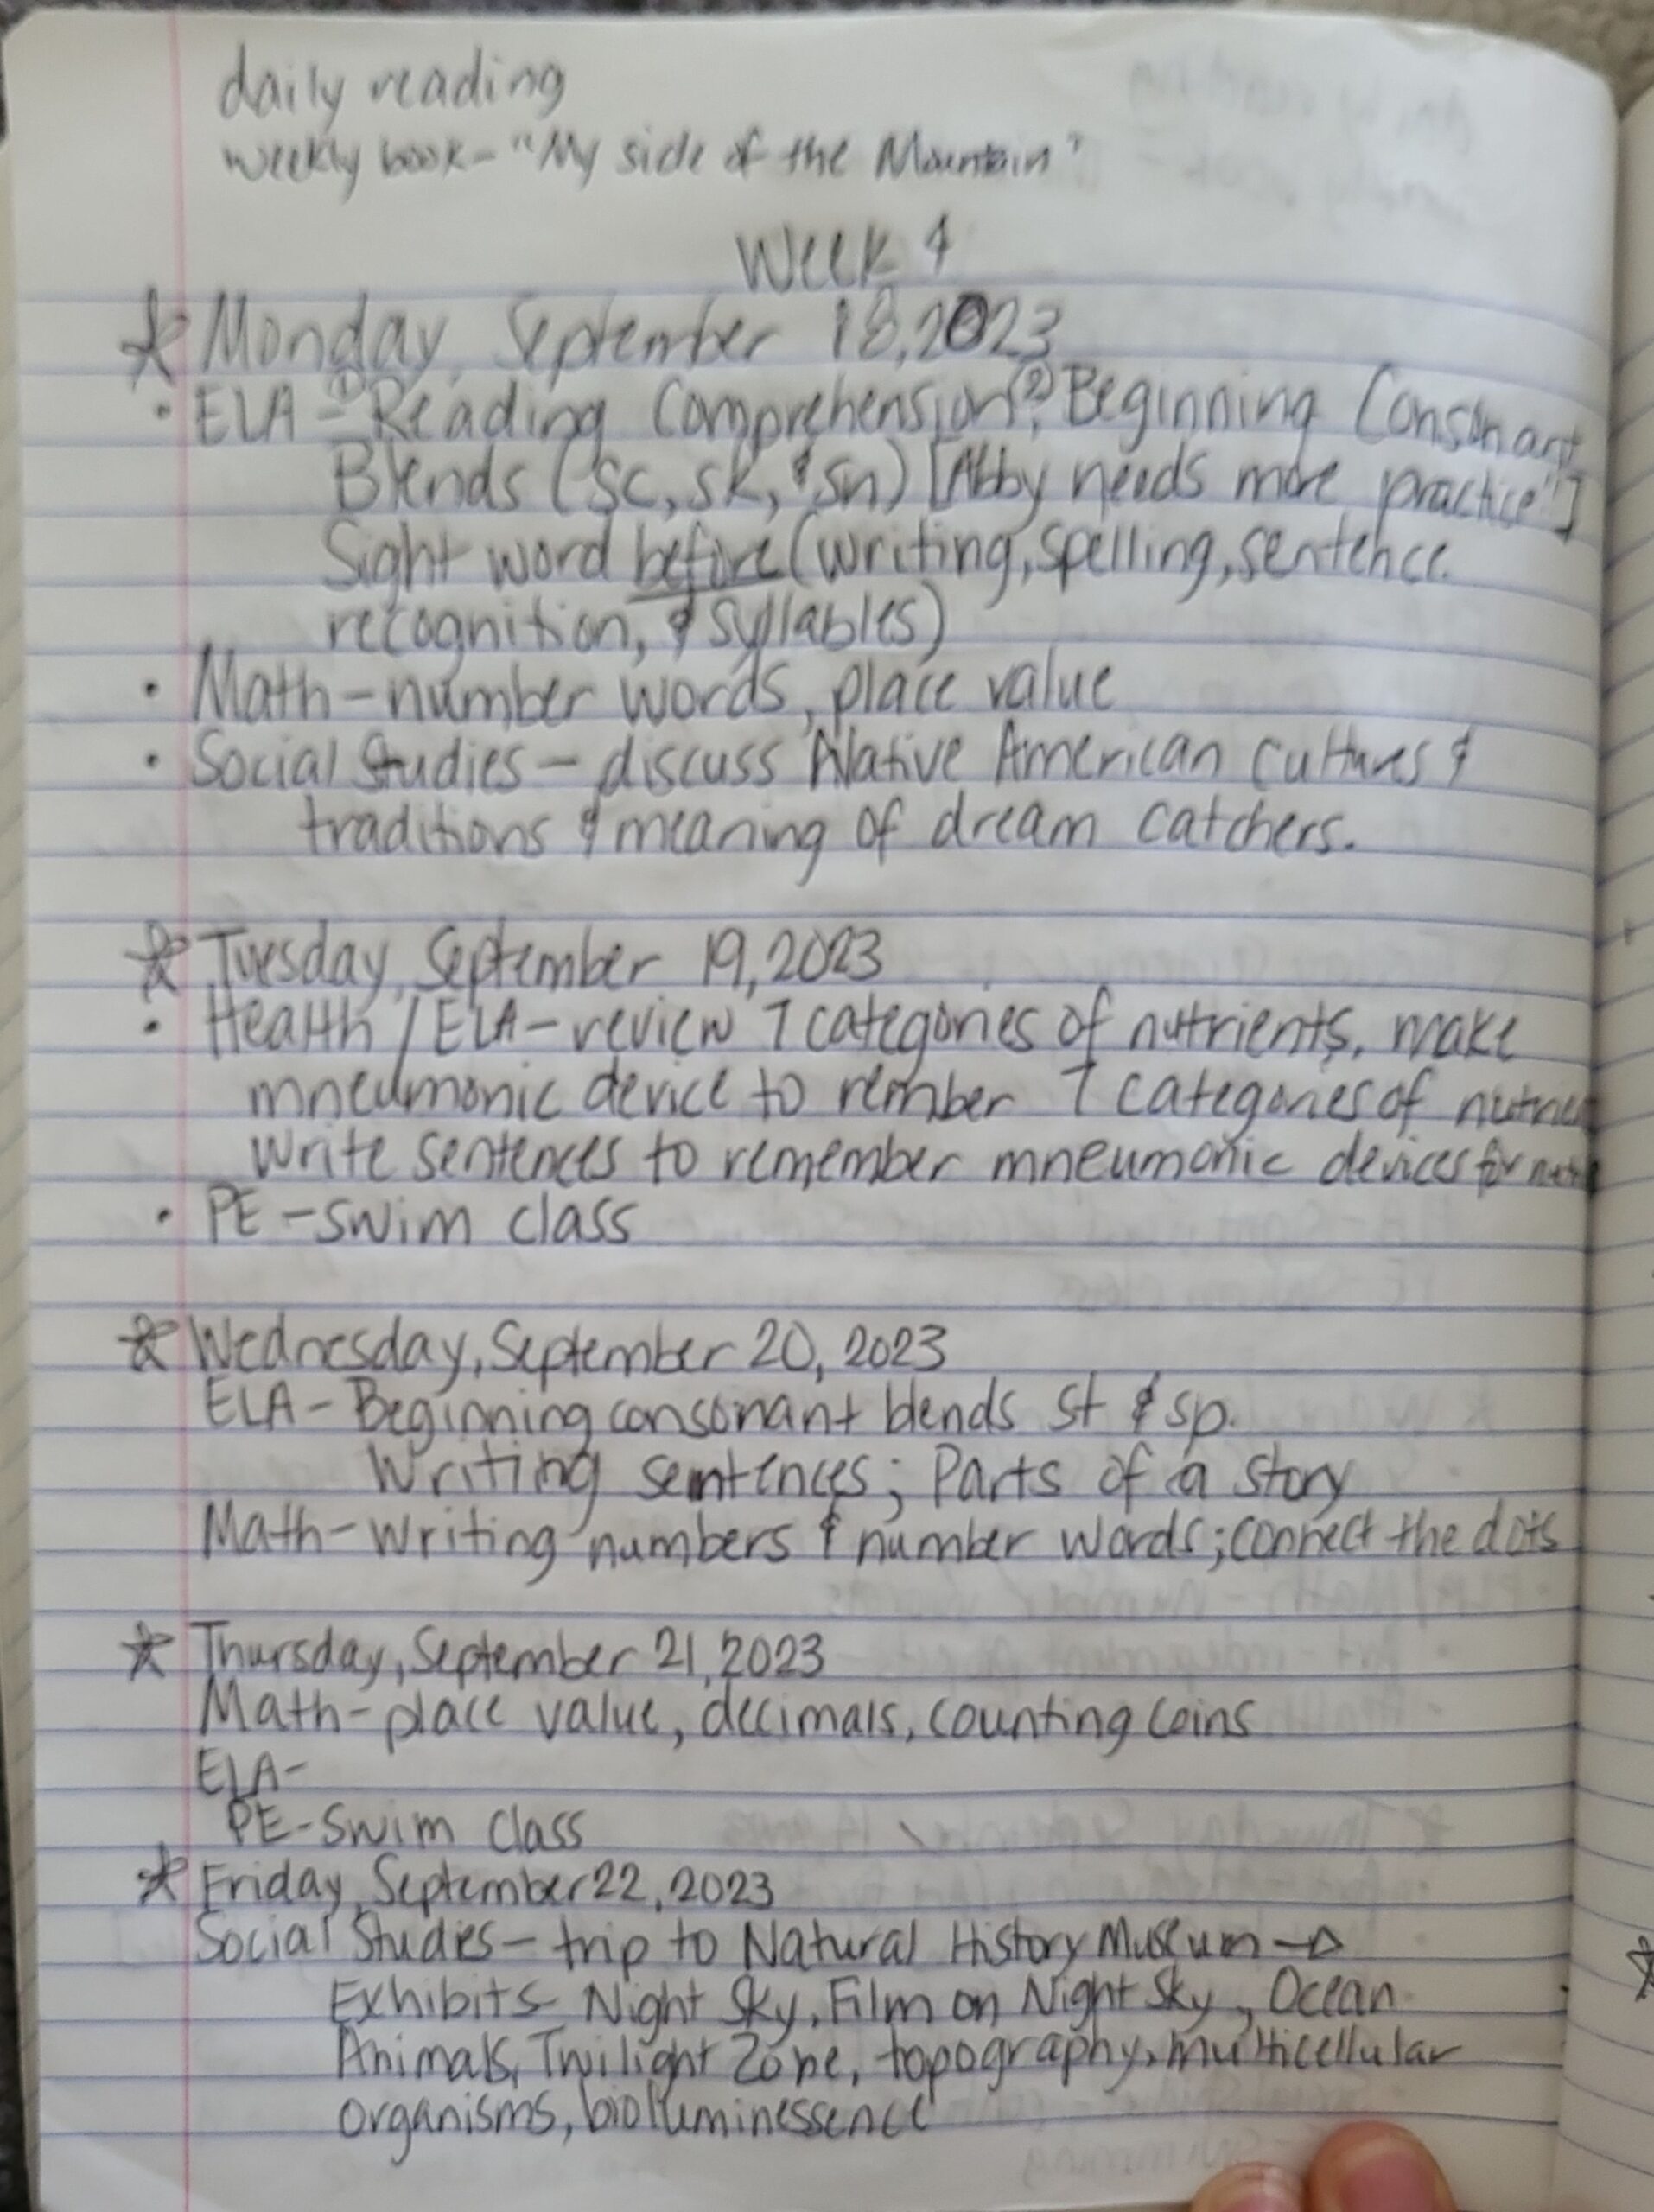 daily reading
weekly book- "My side of the Mountain"
Week 4
* Monday, September 18, 2023
· ELA - ① Reading Comprehension ② Beginning Consonant
Blends (sc, sk, & sn) [Abby needs more practice!]
Sight word before (writing, spelling, sentence
recognition, & syllables)
· Math - number words, place value
· Social Studies - discuss Native American cultures &
traditions & meaning of dream catchers.
* Tuesday, September 19, 2023
· Health / ELA - review 7 categories of nutrients, make
mneumonic device to rember 7 categories of nutrien
Write sentences to remember mneumonic devices for
· PE - swim class
* Wednesday, September 20, 2023
ELA - Beginning consonant blends st & sp.
Writing sentences; Parts of a story
Math - writing numbers & number words; connect the dots
* Thursday, September 21, 2023
Math - place value, decimals, counting coins
ELA -
PE - Swim Class
* Friday, September 22, 2023
Social Studies - trip to Natural History Museum →
Exhibits - Night Sky, Film on Night Sky, Ocean
Animals, Twilight Zone, topography, multicellular
organisms, bioluminessence